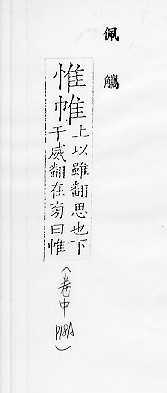 佩觿
惟帷上以雖翻思也下
于威翻在旁曰帷
(卷中 P18A)